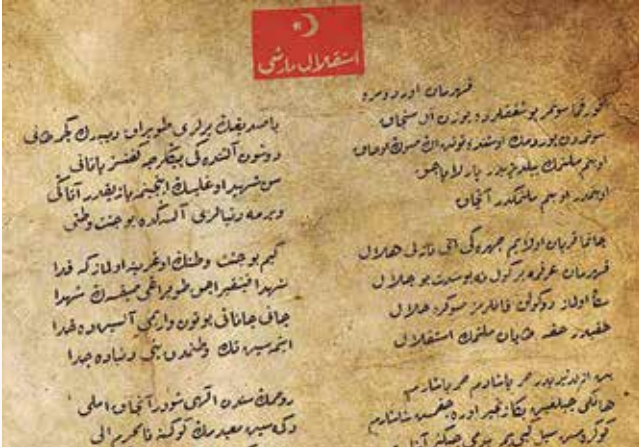 استقلال مارشى
قهرمان اوردومزه
قورقما سونمز بو شفقلرده يوزن آل سنجاق
سونمدن يوردمك اوستنده توتن اك صوك اوجاق
او بنم ملتمك ييلديزيدر پارلاياجق
او بنمدر او بنم ملتمكدر آنجاق
چاتما قربان اولايم چهره كى اى نازلى هلال
قهرمان عرقمه بر كول نه بو شدت بو جلال
سكا اولماز دوكولن قانلرمز صوكره حلال
حقيدر حقه طاپان ملتمك استقلال
بن ازلدنبريدر حر ياشادم حر ياشارم
هانكى چيلغين بكا زنجير اوره جقمش شاشارم
باصديغك يرلرى طوپراق دييه رك كچمه طانى
دوشون آلتنده كى بيكلرجه كفنسز ياتانى
سن شهيد اوغليسك اينجيتمه يازيقدر آتاكى
ويرمه دنيالرى آلسه كده بو جنت وطنى
كيم بو جنت وطنك اوغرينه اولماز كه فدا
شهدا فيشقيراجق طوپراغى صيقسه ك شهدا
جانى جانانى بوتون واريمى آلسين ده خدا
ايتمه سين تك وطنمدن بنى دنياده جدا
روحمك سندن الهى شودر آنجاق املى
دكمه سين معبدمك كوكسنه نامحرم الى